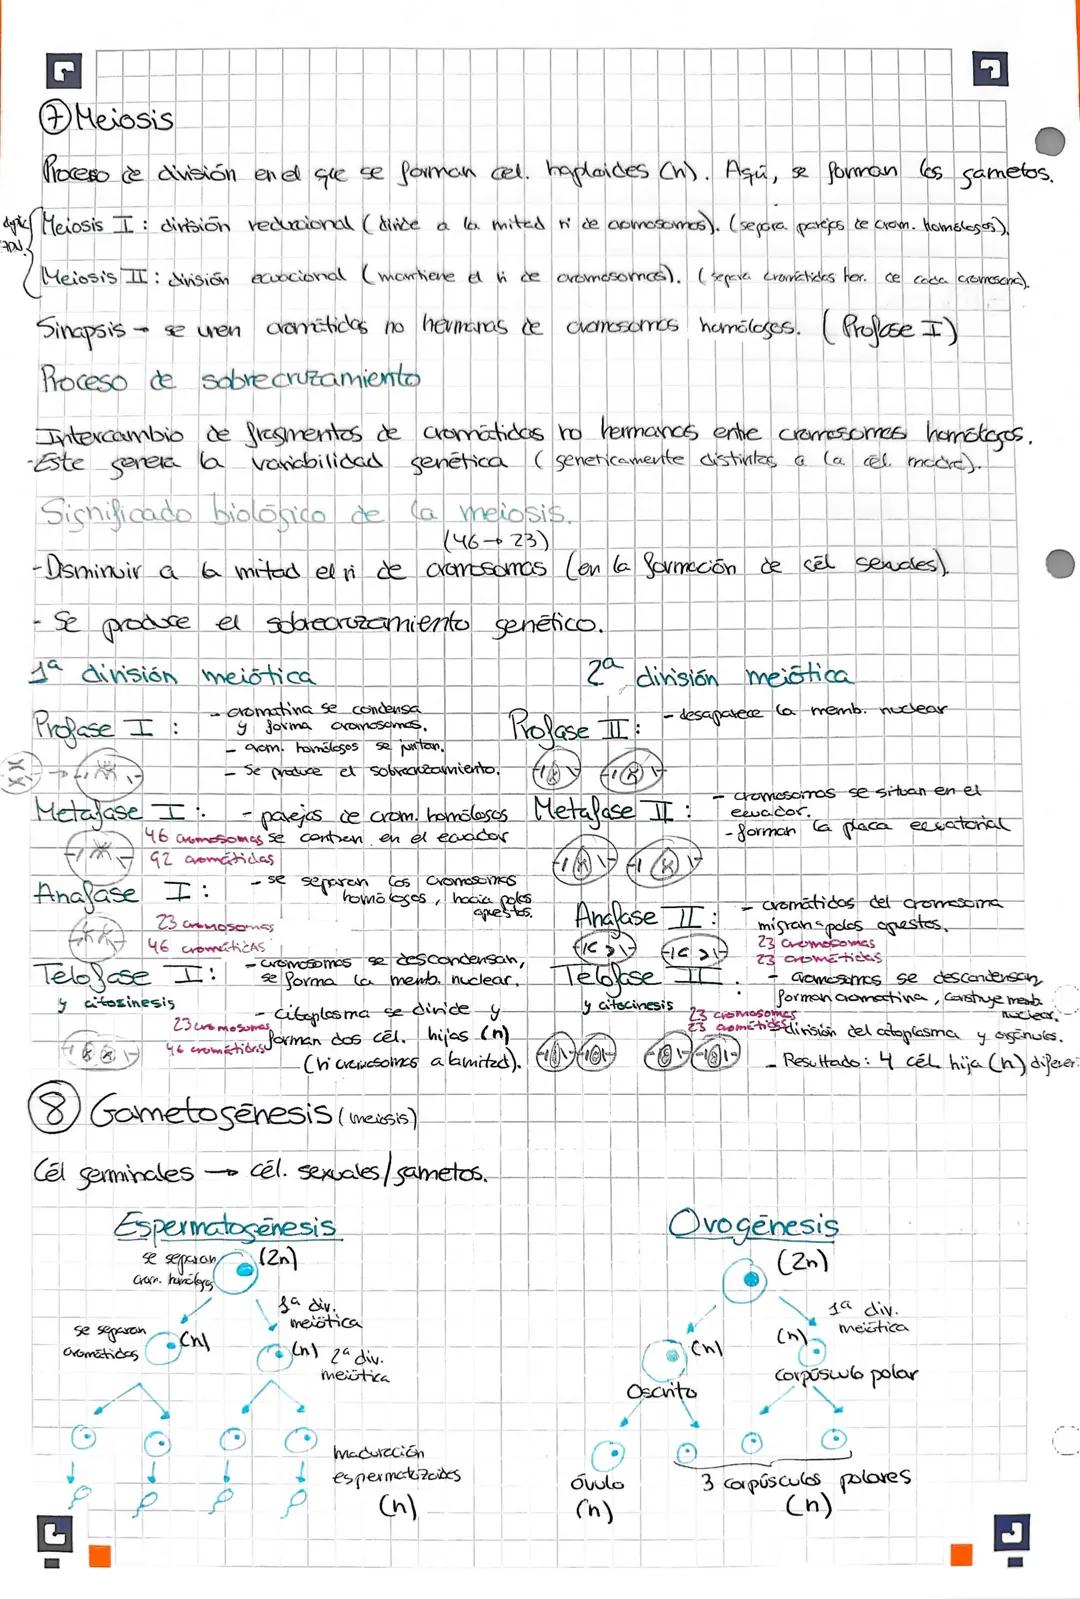 7 Meiosis
Proceso de división en el que se forman cel. haploides (n). Aquí, se forman los gametos.
Meiosis I: división reduccional (divide a la mitad nº de cromosomas). (separa parejas de crom. homólogos).
Meiosis II: división ecuacional (mantiene el nº de cromosomas). (separa cromátidas her. de cada cromosoma).
Sinapsis → se unen cromátidas no hermanas de cromosomas homólogos. (Profase I)
Proceso de sobrecruzamiento
Intercambio de fragmentos de cromátidas no hermanas entre cromosomas homólogos.
-Este genera la variabilidad genética (geneticamente distintas a la cél. madre).
Significado biológico de la meiosis.
(46→23)
-Disminuir a la mitad el nº de cromosomas (en la formación de cél sexuales).
- Se produce el sobrecruzamiento genético.
1ª división meiótica
Profase I:
- cromatina se condensa
y forma cromosomas.
- crom. homólogos se juntan.
- Se produce el sobrecruzamiento.
Metafase I:
- parejas de crom. homólogos
se centran en el ecuador
46 cromosomas
92 cromátidas
Anafase I:
- se separan los cromosomas
homólogos, hacia polos
opuestos.
23 cromosomas
46 cromátidas
Telofase I:
y citocinesis
- cromosomas se descondensan,
se forma la memb. nuclear.
- citoplasma se divide y
forman dos cél. hijas (n)
(nº cromosomas a la mitad).
23 cromosomas
46 cromátidas
2ª división meiótica
Profase II:
- desaparece la memb. nuclear
Metafase II:
- cromosomas se situan en el
ecuador.
- forman la placa ecuatorial
Anafase II:
- cromátidas del cromosoma
migran a polos opuestos.
23 cromosomas
23 cromátidas
Telofase II.
y citocinesis
- cromosomas se descondensan,
forman cromatina, construye memb.
nuclear.
23 cromosomas
23 cromátidas
división del citoplasma y orgánulos.
- Resultado: 4 cél. hija (n) diferen
8 Gametogénesis (meiosis)
Cél germinales → cél. sexuales/gametos.
Espermatogénesis
se separan
crom. homólogos
(2n)
1ª div.
meiótica
se separan
cromátidas
(n)
(n)
2ª div.
meiótica
maduración
espermatozoides
(n)
Ovogénesis
(2n)
1ª div.
meiótica
(n)
(n)
Oocito
corpúsculo polar
óvulo
(n)
3 corpúsculos polares
(n)